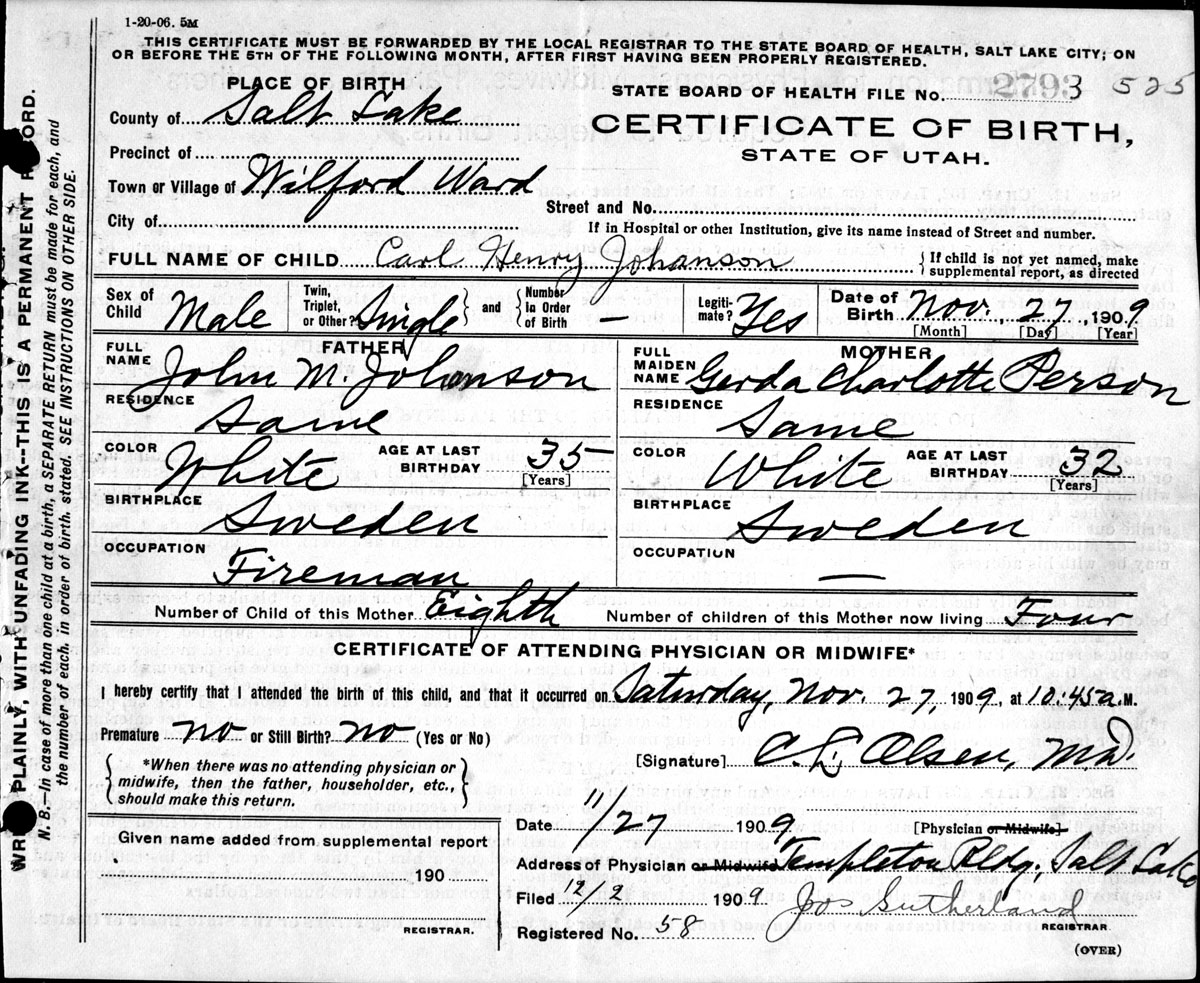 1-20-06. 5M
THIS CERTIFICATE MUST BE FORWARDED BY THE LOCAL REGISTRAR TO THE STATE BOARD OF HEALTH, SALT LAKE CITY; ON
OR BEFORE THE 5TH OF THE FOLLOWING MONTH, AFTER FIRST HAVING BEEN PROPERLY REGISTERED.
PLACE OF BIRTH
STATE BOARD OF HEALTH FILE No. 2793 525
County of Salt Lake
CERTIFICATE OF BIRTH,
STATE OF UTAH.
Precinct of
Town or Village of Wilford Ward
Street and No.
City of
If in Hospital or other Institution, give its name instead of Street and number.
FULL NAME OF CHILD Carl Henry Johanson { If child is not yet named, make
supplemental report, as directed
Sex of Child Male Twin, Triplet, or Other? Single } and { Number In Order of Birth — Legitimate? Yes Date of Birth Nov. 27, 1909
[Month] [Day] [Year]
FATHER
FULL NAME John M. Johanson
MOTHER
FULL MAIDEN NAME Gerda Charlotte Person
RESIDENCE Same
RESIDENCE Same
COLOR White AGE AT LAST BIRTHDAY 35 [Years]
COLOR White AGE AT LAST BIRTHDAY 32 [Years]
BIRTHPLACE Sweden
BIRTHPLACE Sweden
OCCUPATION Fireman
OCCUPATION —
Number of Child of this Mother Eighth Number of children of this Mother now living Four
CERTIFICATE OF ATTENDING PHYSICIAN OR MIDWIFE*
I hereby certify that I attended the birth of this child, and that it occurred on Saturday, Nov. 27, 1909, at 10:45 a. M.
Premature no or Still Birth? no (Yes or No)
[Signature] C. L. Olsen, M.D.
{ *When there was no attending physician or
midwife, then the father, householder, etc.,
should make this return. }
Date 11/27 1909 [Physician or Midwife]
Address of Physician or Midwife Templeton Bldg; Salt Lake
Filed 12/2 1909 Jos Sutherland
REGISTRAR.
Registered No. 58
(OVER)
Given name added from supplemental report
190
REGISTRAR.
WRI PLAINLY, WITH UNFADING INK--THIS IS A PERMANENT RECORD.
N. B.—In case of more than one child at a birth, a SEPARATE RETURN must be made for each, and
the number of each, in order of birth, stated. SEE INSTRUCTIONS ON OTHER SIDE.